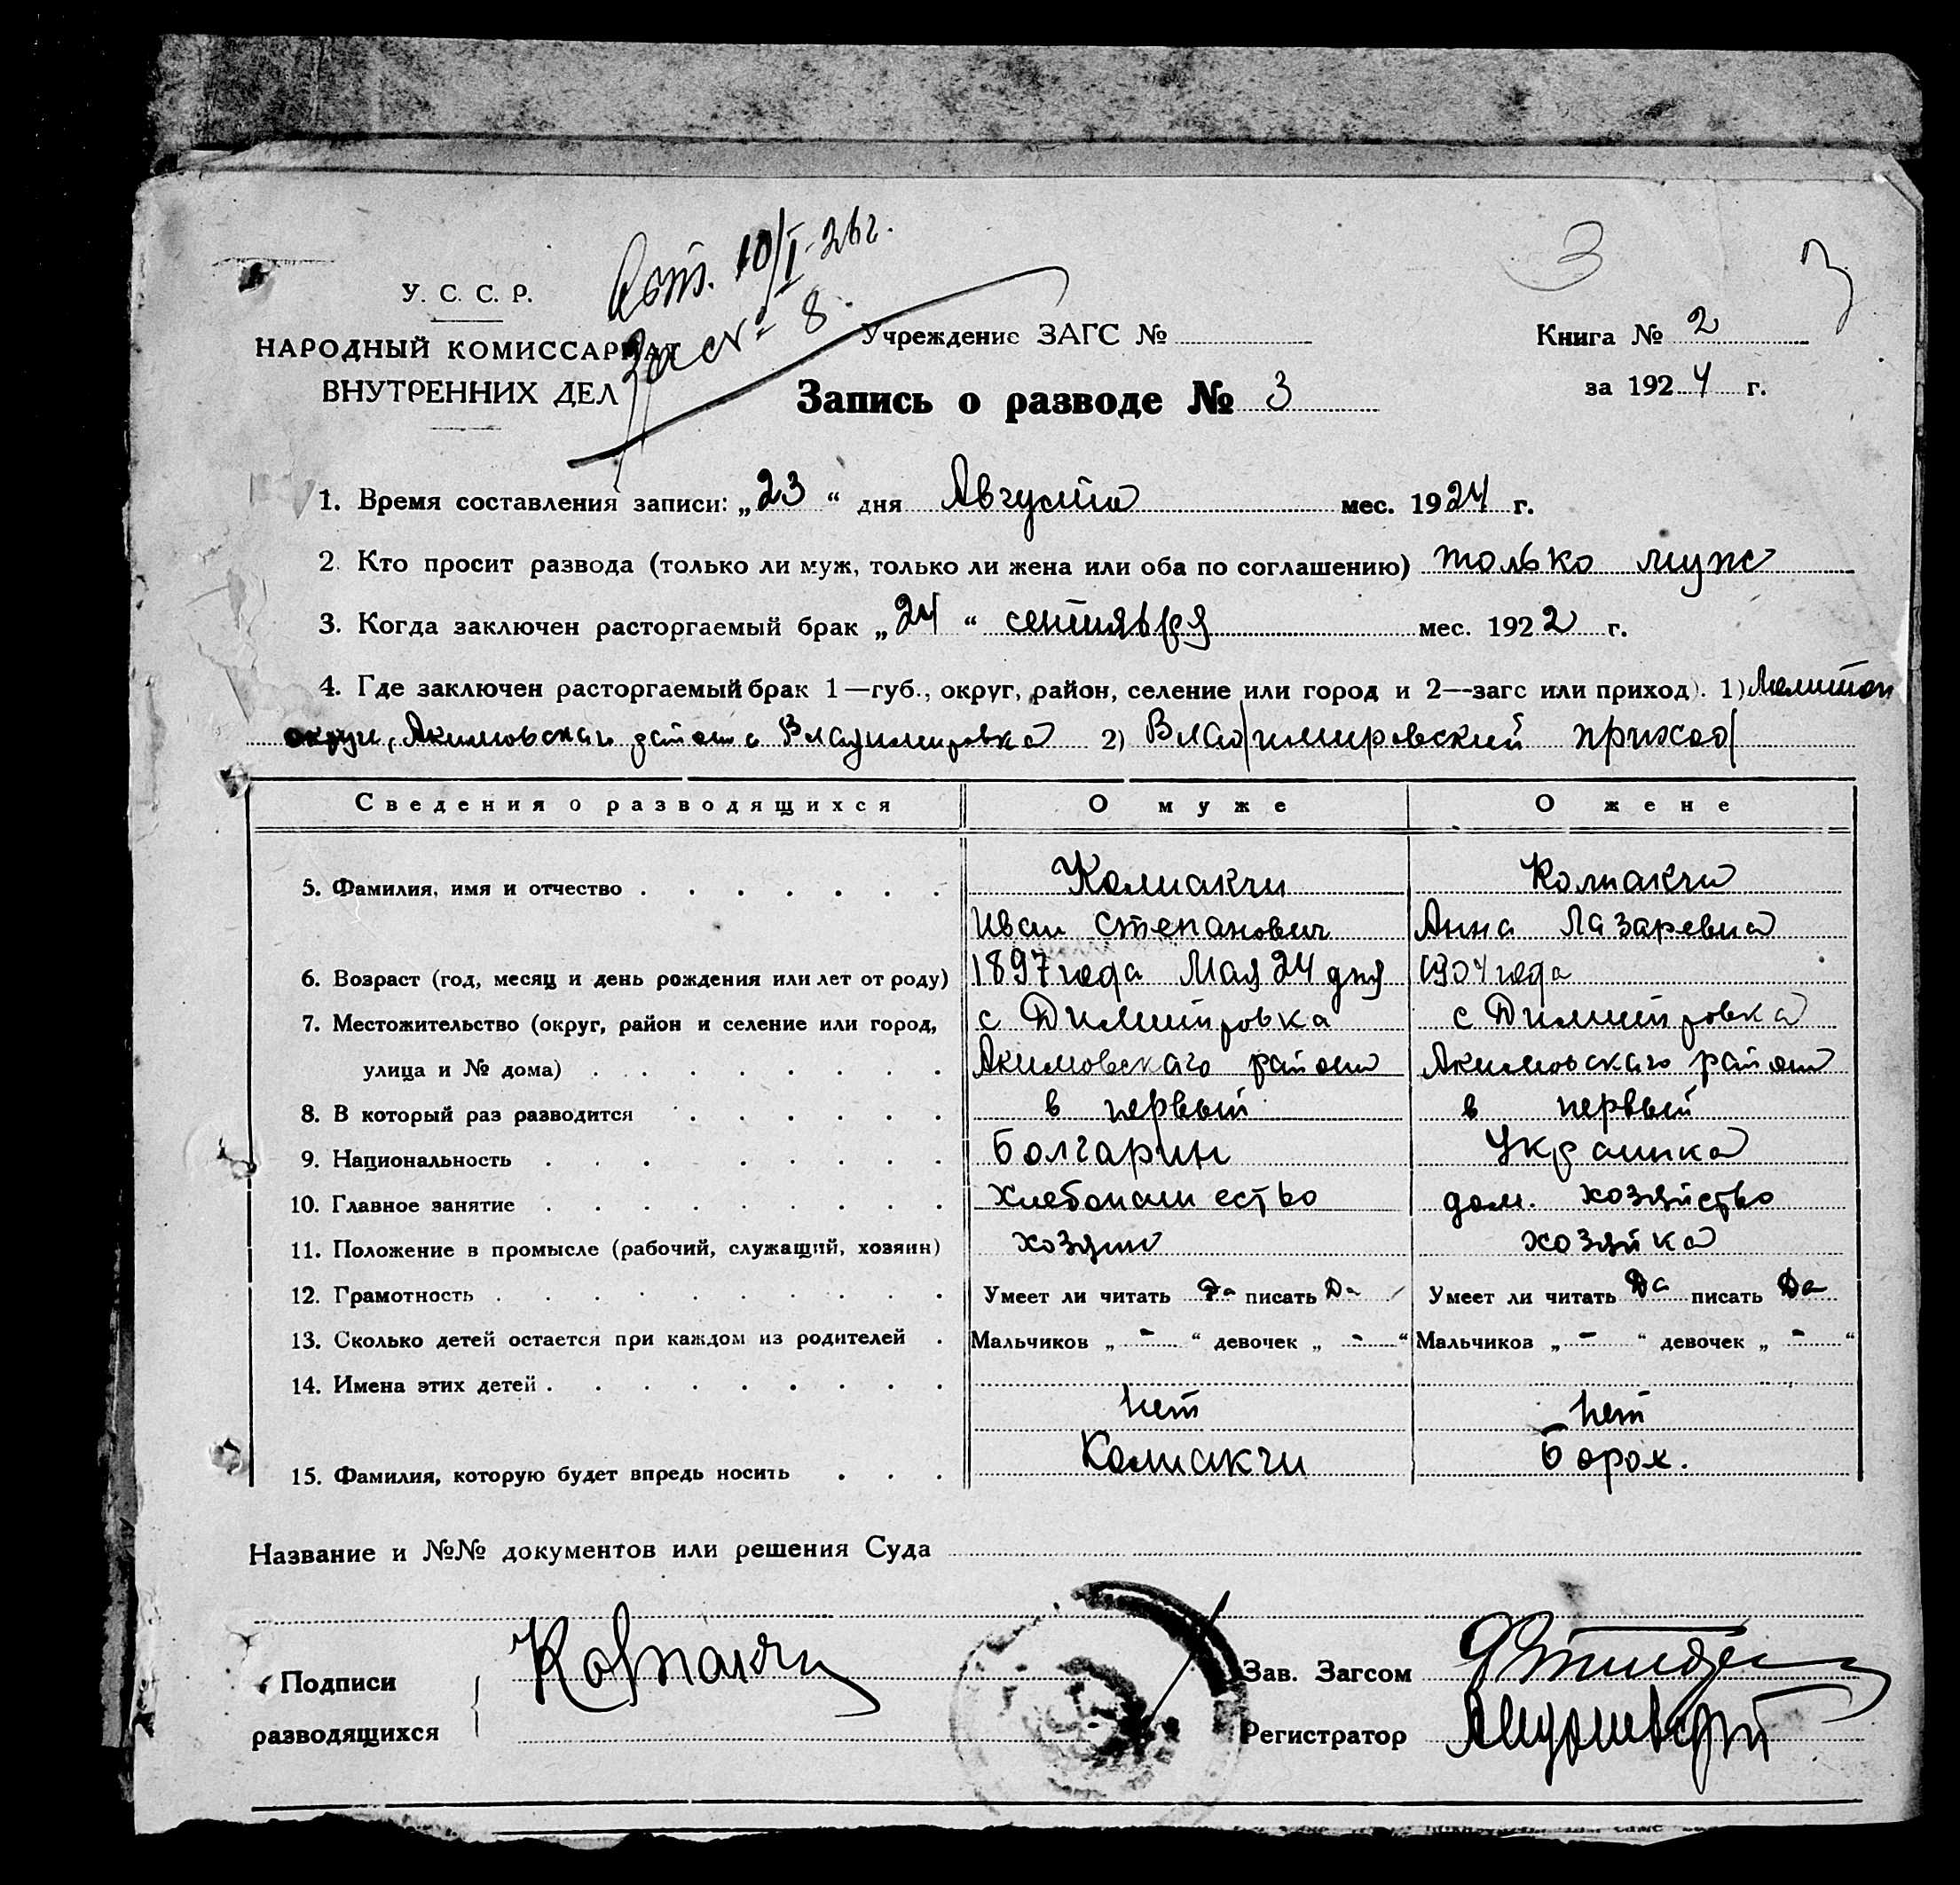 Коп. 10/I-26г.
За № 8.
3
3
У. С. С. Р.
НАРОДНЫЙ КОМИССАРИАТ
ВНУТРЕННИХ ДЕЛ
Учреждение ЗАГС №
Книга № 2
за 1924 г.
Запись о разводе № 3
1. Время составления записи: „23“ дня Августа мес. 1924 г.
2. Кто просит развода (только ли муж, только ли жена или оба по соглашению) только муж
3. Когда заключен расторгаемый брак „24“ сентября мес. 1922 г.
4. Где заключен расторгаемый брак 1—губ., округ, район, селение или город и 2—загс или приход). 1) Мелитоп
округ, Акимовскаго района Владимировка 2) Владимировский приход
Сведения о разводящихся О муже О жене
5. Фамилия, имя и отчество Колпакчи Колпакчи
Иван Степанович Анна Лазаревна
6. Возраст (год, месяц и день рождения или лет от роду) 1897 года Мая 24 дня 1904 года
7. Местожительство (округ, район и селение или город, с Димитровка с Димитровка
улица и № дома) Акимовскаго района Акимовскаго района
8. В который раз разводится в первый в первый
9. Национальность Болгарин Украинка
10. Главное занятие Хлебопашество дом. хозяйство
11. Положение в промысле (рабочий, служащий, хозяин) хозяин хозяйка
12. Грамотность Умеет ли читать Да писать Да Умеет ли читать Да писать Да
13. Сколько детей остается при каждом из родителей Мальчиков „ - “ девочек „ - “ Мальчиков „ - “ девочек „ - “
14. Имена этих детей
нет нет
15. Фамилия, которую будет впредь носить Колпакчи Борох.
Название и №№ документов или решения Суда
Подписи
разводящихся
Колпакчи
Зав. Загсом
Регистратор